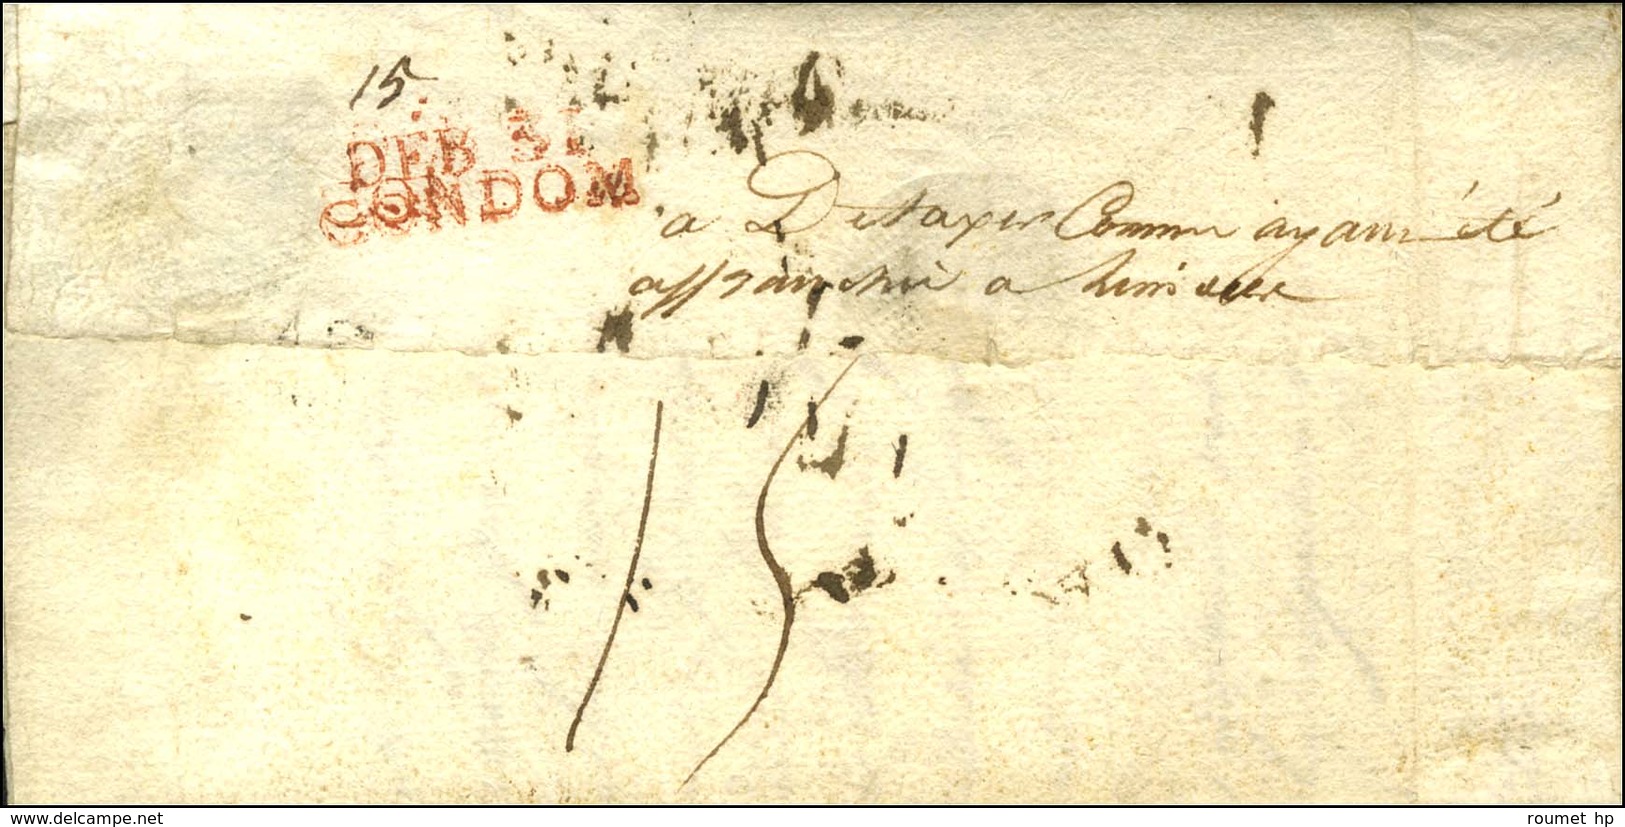 15
DEB 31
CONDOM
a Detaxer Comme ayant été
affranchie a
15
www.delcampe.net
roumet hp